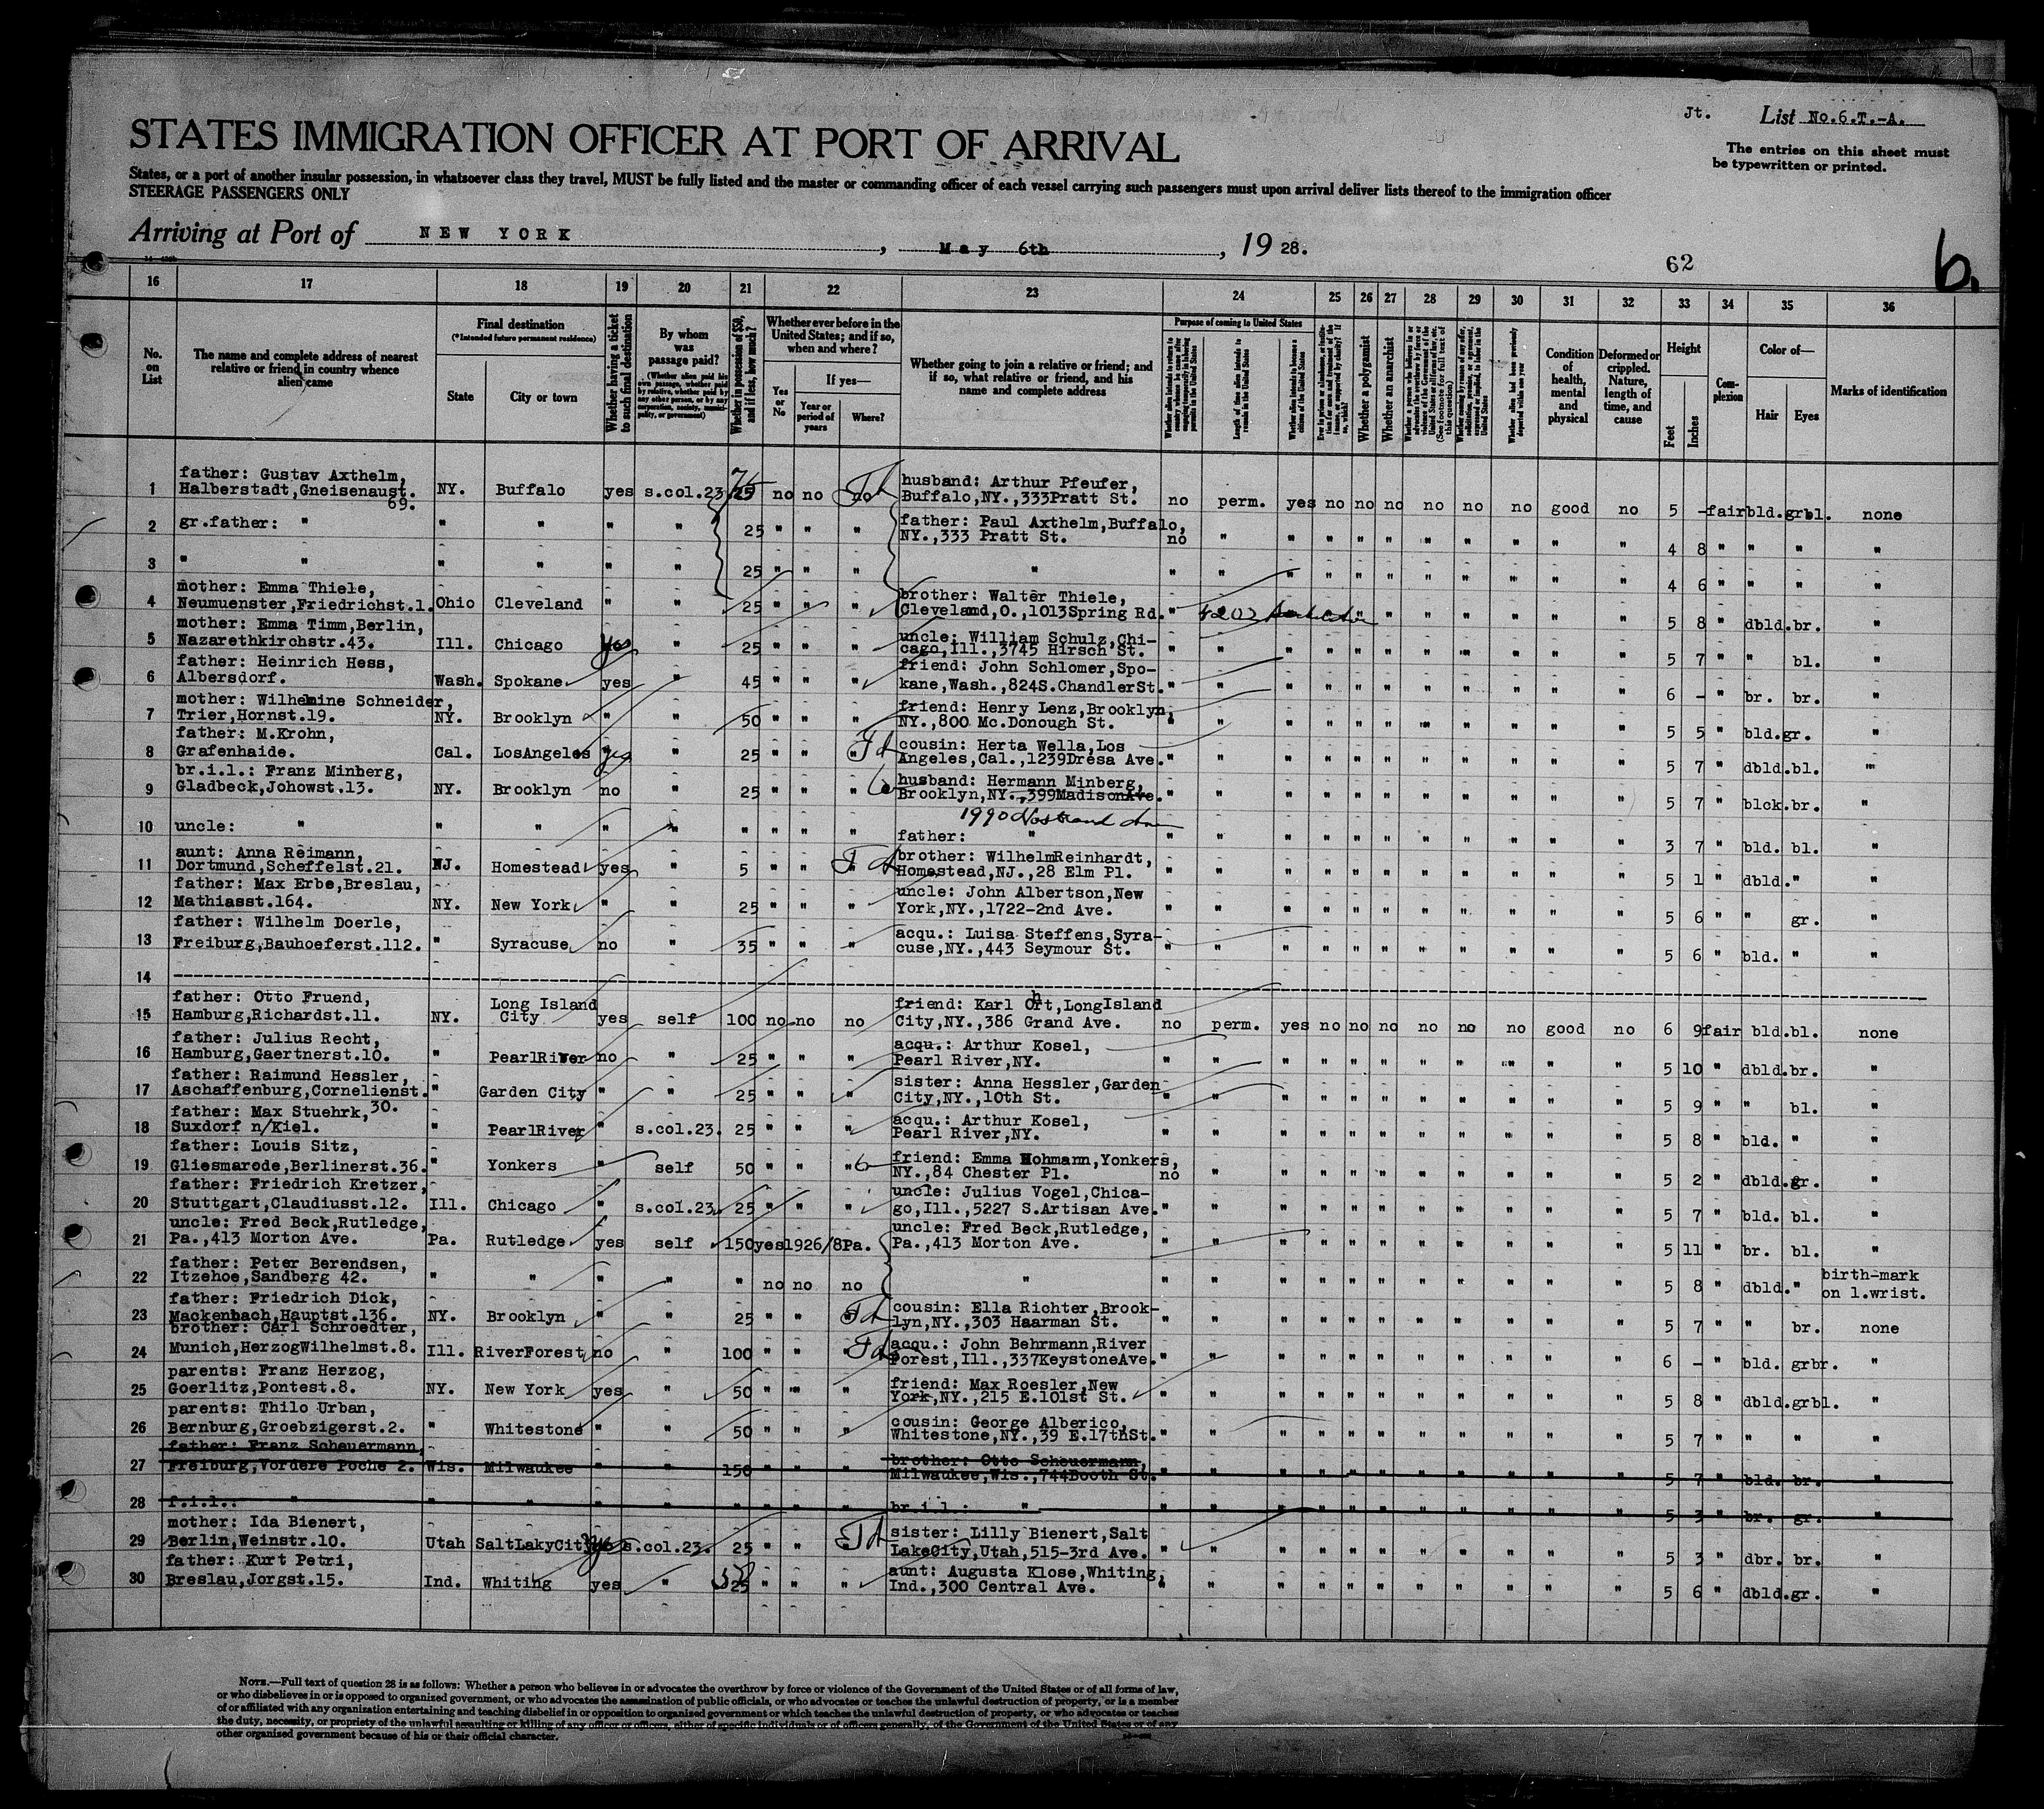 Jt. List No.6.T.-A.
STATES IMMIGRATION OFFICER AT PORT OF ARRIVAL
The entries on this sheet must
be typewritten or printed.
States, or a port of another insular possession, in whatsoever class they travel, MUST be fully listed and the master or commanding officer of each vessel carrying such passengers must upon arrival deliver lists thereof to the immigration officer
STEERAGE PASSENGERS ONLY
Arriving at Port of NEW YORK, May 6th, 19 28.
62
6.
16 17 18 19 20 21 22 23 24 25 26 27 28 29 30 31 32 33 34 35 36
No. on List
The name and complete address of nearest relative or friend in country whence alien came
Final destination
(*Intended future permanent residence)
State
City or town
Whether having a ticket to such final destination
By whom was passage paid?
(Whether alien paid his own passage, whether paid by relative, whether paid by any other person, or by any corporation, society, municipality, or government)
Whether in possession of $50, and if less, how much?
Whether ever before in the United States; and if so, when and where?
Yes or No
If yes—
Year or period of years
Where?
Whether going to join a relative or friend; and if so, what relative or friend, and his name and complete address
Purpose of coming to United States
Length of time alien intends to remain in the United States
Whether alien intends to become a citizen of the United States
Whether a polygamist
Whether an anarchist
Whether alien had been previously deported within one year
Condition of health, mental and physical
Deformed or crippled. Nature, length of time, and cause
Height
Feet
Inches
Complexion
Color of—
Hair
Eyes
Marks of identification
1 father: Gustav Axthelm, Halberstadt,Gneisenaust. 69. NY. Buffalo yes s.col.23 25 75 no no no husband: Arthur Pfeufer, Buffalo,NY.,333Pratt St. no perm. yes no no no no no no good no 5 - fair bld. grbl. none
2 gr.father: " " " " " 25 " " " father: Paul Axthelm,Buffalo, NY.,333 Pratt St. no " " " " " " " " " " 4 8 " " " "
3 " " " " " " 25 " " " " " " " " " " " " " " " 4 6 " " " "
4 mother: Emma Thiele, Neumuenster,Friedrichst.1. Ohio Cleveland " " 25 " " " brother: Walter Thiele, Cleveland,O.,1013Spring Rd. " 4202 " " " " " " " 5 8 " dbld. br. "
5 mother: Emma Timm,Berlin, Nazarethkirchstr.43. Ill. Chicago yes " 25 " " " uncle: William Schulz,Chicago,Ill.,3745 Hirsch St. " " " " " " " " " " " 5 7 " " bl. "
6 father: Heinrich Hess, Albersdorf. Wash. Spokane yes " 45 " " " friend: John Schlomer,Spokane,Wash.,824S.ChandlerSt. " " " " " " " " " " " 6 - " br. br. "
7 mother: Wilhelmine Schneider, Trier,Hornst.19. NY. Brooklyn " " 50 " " " friend: Henry Lenz,Brooklyn, NY.,800 Mc.Donough St. " " " " " " " " " " " 5 5 " bld. gr. "
8 father: M.Krohn, Grafenhaide. Cal. LosAngeles yes " 25 " " " cousin: Herta Wella,Los Angeles,Cal.,1239Dresa Ave. " " " " " " " " " " " 5 7 " dbld. bl. "
9 br.i.l.: Franz Minberg, Gladbeck,Johowst.13. NY. Brooklyn no " 25 " " " husband: Hermann Minberg, Brooklyn,NY.,399MadisonAve. " " " " " " " " " " " 5 7 " blck. br. "
1990 Nostrand Ave
10 uncle: " " " " " " " " " father: " " " " " " " " " " " " 3 7 " bld. bl. "
11 aunt: Anna Reimann, Dortmund,Scheffelst.21. NJ. Homestead yes " 5 " " " brother: WilhelmReinhardt, Homestead,NJ.,28 Elm Pl. " " " " " " " " " " " 5 1 " dbld. " "
12 father: Max Erbe,Breslau, Mathiasst.164. NY. New York " " 25 " " " uncle: John Albertson,New York,NY.,1722-2nd Ave. " " " " " " " " " " " 5 6 " " gr. "
13 father: Wilhelm Doerle, Freiburg,Bauhoeferst.112. " Syracuse no " 35 " " " acqu.: Luisa Steffens,Syracuse,NY.,443 Seymour St. " " " " " " " " " " " 5 6 " bld. " "
14
15 father: Otto Fruend, Hamburg,Richardst.11. NY. Long Island City yes self 100 no no no friend: Karl Orht,LongIsland City,NY.,386 Grand Ave. no perm. yes no no no no no no good no 6 9 fair bld. bl. none
16 father: Julius Recht, Hamburg,Gaertnerst.10. " PearlRiver no " 25 " " " acqu.: Arthur Kosel, Pearl River,NY. " " " " " " " " " " " 5 10 " dbld. br. "
17 father: Raimund Hessler, Aschaffenburg,Cornelienst. 30. " Garden City " " 25 " " " sister: Anna Hessler,Garden City,NY.,10th St. " " " " " " " " " " " 5 9 " " bl. "
18 father: Max Stuehrk, Suxdorf n/Kiel. " PearlRiver " s.col.23. 25 " " " acqu.: Arthur Kosel, Pearl River,NY. " " " " " " " " " " " 5 8 " bld. " "
19 father: Louis Sitz, Gliesmarode,Berlinerst.36. " Yonkers " self 50 " " " friend: Emma Hohmann,Yonkers, NY.,84 Chester Pl. no " " " " " " " " " " 5 2 " dbld. gr. "
20 father: Friedrich Kretzer, Stuttgart,Claudiusst.12. Ill. Chicago " s.col.23. 25 " " " uncle: Julius Vogel,Chicago,Ill.,5227 S.Artisan Ave. " " " " " " " " " " " 5 7 " bld. bl. "
21 uncle: Fred Beck,Rutledge, Pa.,413 Morton Ave. Pa. Rutledge yes self 150 yes 1926/8 Pa. uncle: Fred Beck,Rutledge, Pa.,413 Morton Ave. " " " " " " " " " " " 5 11 " br. bl. "
22 father: Peter Berendsen, Itzehoe,Sandberg 42. " " " " " no no no " " " " " " " " " " " " 5 8 " dbld. " birth-mark on l.wrist.
23 father: Friedrich Dick, Mackenbach,Hauptst.136. NY. Brooklyn " " 25 " " " cousin: Ella Richter,Brooklyn,NY.,303 Haarman St. " " " " " " " " " " " 5 7 " " br. none
24 brother: Carl Schroedter, Munich,HerzogWilhelmst.8. Ill. RiverForest no " 100 " " " acqu.: John Behrmann,River Forest,Ill.,337KeystoneAve. " " " " " " " " " " " 6 - " bld. grbr. "
25 parents: Franz Herzog, Goerlitz,Pontest.8. NY. New York yes " 50 " " " friend: Max Roesler,New York,NY.,215 E.101st St. " " " " " " " " " " " 5 8 " dbld. grbl. "
26 parents: Thilo Urban, Bernburg,Groebzigerst.2. " Whitestone " " 50 " " " cousin: George Alberico, Whitestone,NY.,39 E.17thSt. " " " " " " " " " " " 5 7 " " " "
27 father: Franz Scheuermann, Freiburg,Vordere Poche 2. Wis. Milwaukee " " 150 " " " brother: Otto Scheuermann, Milwaukee,Wis.,744Booth St. " " " " " " " " " " " 5 7 " bld. br. "
28 f.i.l.: " " " " " " " " " br.i.l.: " " " " " " " " " " " " 5 3 " br. gr. "
29 mother: Ida Bienert, Berlin,Weinstr.10. Utah SaltLakyCity yes s.col.23. 25 " " " sister: Lilly Bienert,Salt LakeCity,Utah,515-3rd Ave. " " " " " " " " " " " 5 3 " dbr. br. "
30 father: Kurt Petri, Breslau,Jorgst.15. Ind. Whiting yes " 25 " " " aunt: Augusta Klose,Whiting, Ind.,300 Central Ave. " " " " " " " " " " " 5 6 " dbld. gr. "
NOTE.—Full text of question 28 is as follows: Whether a person who believes in or advocates the overthrow by force or violence of the Government of the United States or of all forms of law,
or who disbelieves in or is opposed to organized government, or who advocates the assassination of public officials, or who advocates or teaches the unlawful destruction of property, or is a member
of or affiliated with any organization entertaining and teaching disbelief in or opposition to organized government or which teaches the unlawful destruction of property, or who advocates or teaches
the duty, necessity, or propriety of the unlawful assaulting or killing of any officer or officers, either of specific individuals or of officers generally, of the Government of the United States or of any
other organized government because of his or their official character.